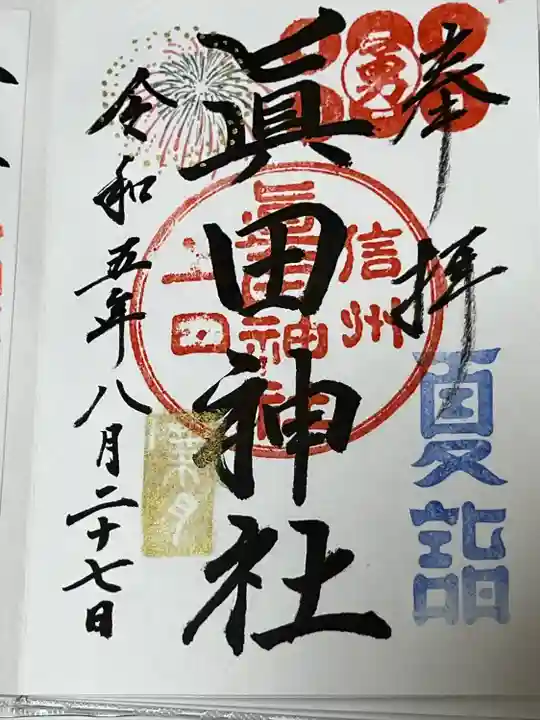 奉拝
勇
夏詣
眞田神社
信州
眞田神社
上田
葉月
令和五年八月二十七日